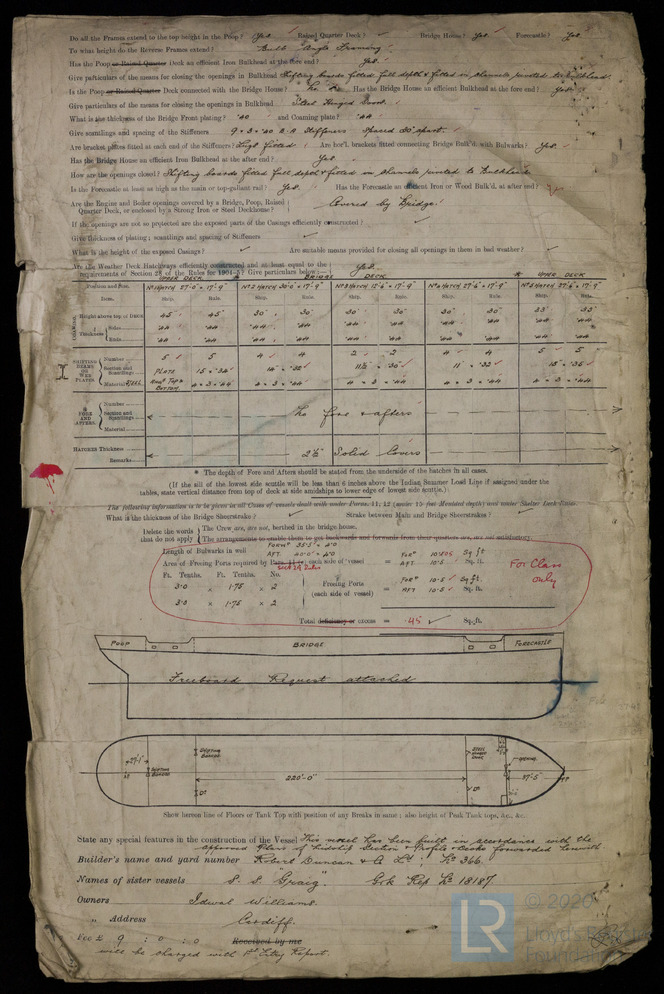 Do all the Frames extend to the top height in the Poop? Yes Raised Quarter Deck? Bridge House? Yes Forecastle? Yes
To what height do the Reverse Frames extend? Bulb Angle Framing
Has the Poop or Raised Quarter Deck an efficient Iron Bulkhead at the fore end? Yes.
Give particulars of the means for closing the openings in Bulkhead Shifting boards fitted full depth & fitted in channels riveted to bulkhead.
Is the Poop or Raised Quarter Deck connected with the Bridge House? No Has the Bridge House an efficient Bulkhead at the fore end? Yes
Give particulars of the means for closing the openings in Bulkhead Steel Hinged Doors.
What is the thickness of the Bridge Front plating? .40 and Coaming plate? .44
Give scantlings and spacing of the Stiffeners 9 × 3 × .40 B.A Stiffeners Spaced 30" apart.
Are bracket plates fitted at each end of the Stiffeners? Lugs fitted Are hor'l. brackets fitted connecting Bridge Bulk'd. with Bulwarks? Yes.
Has the Bridge House an efficient Iron Bulkhead at the after end? Yes
How are the openings closed? Shifting boards fitted full depth & fitted in channels riveted to Bulkhead
Is the Forecastle at least as high as the main or top-gallant rail? Yes. Has the Forecastle an efficient Iron or Wood Bulk'd. at after end?
Are the Engine and Boiler openings covered by a Bridge, Poop, Raised Quarter Deck, or enclosed by a Strong Iron or Steel Deckhouse? Covered by Bridge.
If the openings are not so protected are the exposed parts of the Casings efficiently constructed?
Give thickness of plating; scantlings and spacing of Stiffeners
What is the height of the exposed Casings? Are suitable means provided for closing all openings in them in bad weather?
Are the Weather Deck Hatchways efficiently constructed and at least equal to the requirements of Section 28 of the Rules for 1904-5? Give particulars below:— Yes.
UPPER DECK * BRIDGE DECK * UPPER DECK
Position and Size. No 1 Hatch 27'.0" × 17'-9" No 2 Hatch 30'.0" × 17'-9" No 3 Hatch 12'.6" × 17'-9" No 4 Hatch 27'.6" × 17'-9" No 5 Hatch 27'.6" × 17'-9"
Item. Ship. Rule. Ship. Rule. Ship. Rule. Ship. Rule. Ship. Rule.
Height above top of DECK 45" 45" 30" 30" 30" 30" 30" 30" 33" 33"
COAMING Thickness Sides .44 .44 .44 .44 .44 .44 .44 .44 .44 .44
Ends .44 .44 .44 .44 .44 .44 .44 .44 .44 .44
SHIFTING BEAMS OR WEB PLATES. Number 5 5 4 4 2 2 4 4 5 5
Section and Scantlings PLATE 15 × .34 14 × .32 11½ × .30 11 × .32 15 × .35
Material STEEL 4 × 3 × .44 4 × 3 × .44 4 × 3 × .44 4 × 3 × .44 4 × 3 × .44
FORE AND AFTERS. Number
Section and Scantlings No fore & afters
Material
HATCHES Thickness
Remarks 2½ Solid Covers
* The depth of Fore and Afters should be stated from the underside of the hatches in all cases.
(If the sill of the lowest side scuttle will be less than 6 inches above the Indian Summer Load Line if assigned under the
tables, state vertical distance from top of deck at side amidships to lower edge of lowest side scuttle.)
What is the thickness of the Bridge Sheerstrake? Strake between Main and Bridge Sheerstrakes?
Delete the words that do not apply
The Crew are, are not, berthed in the bridge house.
The arrangements to enable them to get backwards and forwards from their quarters are, are not satisfactory.
Length of Bulwarks in well FORWD 35.5' = 40 AFT 40.0' = 40
Area of Freeing Ports required by each side of vessel = FORD 10.505 Sq ft
AFT 10.5 Sq. ft.
For Class only
Ft. Tenths. Ft. Tenths. No.
3.0 × 1.75 × 2 Freeing Ports = FORD 10.5 Sq. ft.
(each side of vessel) AFT 10.5 Sq. ft.
3.0 × 1.75 × 2
Total deficiency or excess = .45 Sq. ft.
POOP BRIDGE FORECASTLE
Freeboard Request attached
27'-1" SHIFTING BOARDS 220'-0" STEEL HINGED DOOR OPENING 37'-5"
Show hereon line of Floors or Tank Top with position of any Breaks in same; also height of Peak Tank tops, &c., &c.
State any special features in the construction of the Vessel This vessel has been built in accordance with the
approved Plans of Midship Section & Profile & Decks forwarded herewith
Builder's name and yard number Robert Duncan & Co Ltd No 366.
Names of sister vessels S. S. "Graig" Grk Rep No 18187
Owners Idwal Williams.
" Address Cardiff.
Fee £ 9 : 0 : 0 Received by me
will be charged with 1st Entry Report.
LR © 2020
Lloyd's Register
Foundation